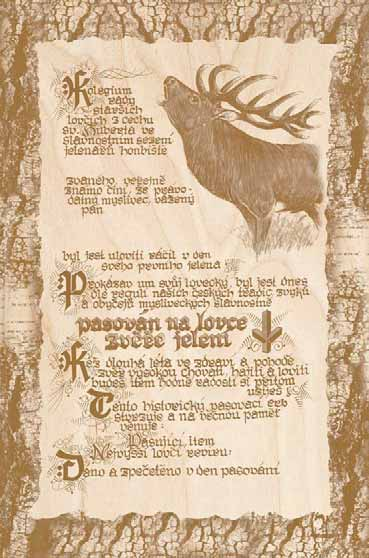 Kolegium
rady
starších
lovčích z cechu
sv. Huberta ve
slavnostním sezení
jelenářů honbiště
zvaného, veřejně
známo činí, že pravo-
datný myslivec, vážený
pán
byl jest uloviti ráčil v den
svého prvního jelena
Prokázav um svůj lovecký, byl jest dnes
dle regulí našich českých tradic, zvyků
a obyčejů mysliveckých slavnostně
pasován na lovce
zvěře jelení
Kéž dlouhá léta ve zdraví a pohodě
zvěř vysokou chovati, hájiti a loviti
budeš item hodně radosti si přitom
užiješ
Tento historický pasovací
stvrzuje a na věčnou paměť
věnuje:
Pasující, item
Nejvyšší lovčí revíru:
Dáno a zpečetěno v den pasování